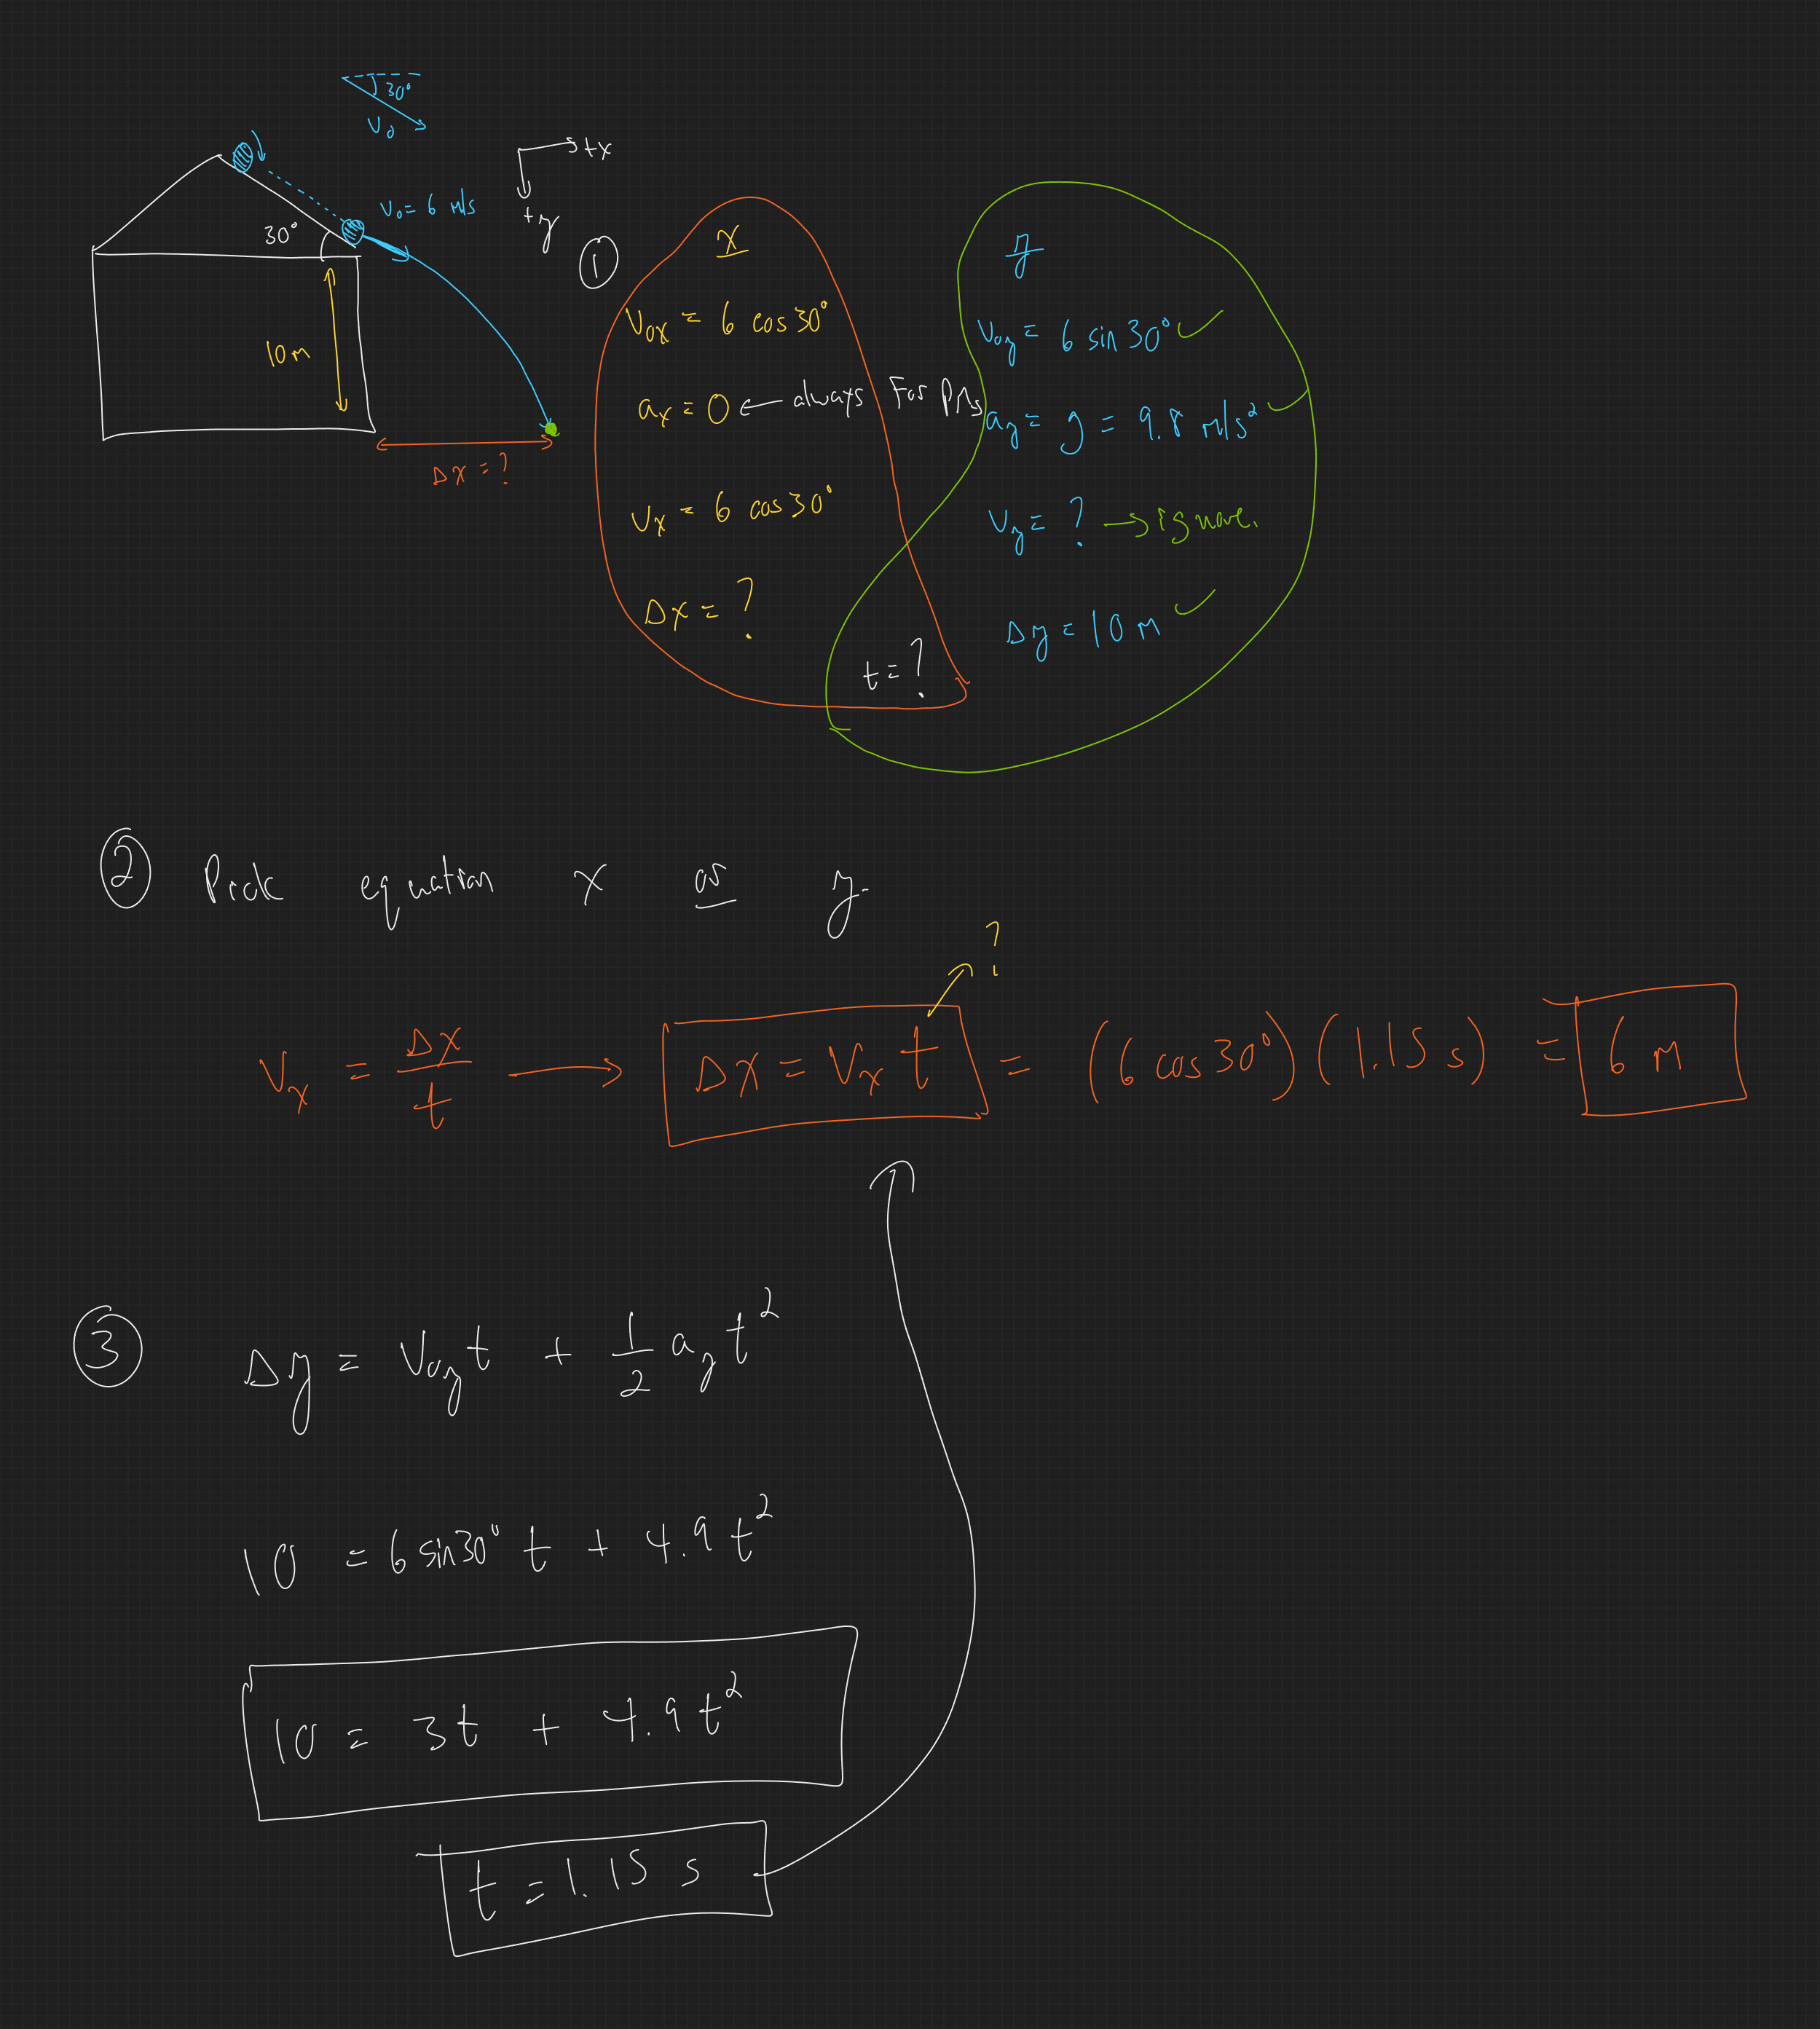 30°
V₀
+x
+y
V₀ = 6 m/s
30°
10 m
Δx = ?
①
x
V₀ₓ = 6 cos 30°
aₓ = 0 ← always For PMs
Vₓ = 6 cos 30°
Δx = ?
t = ?
y
V₀y = 6 sin 30° ✓
ay = g = 9.8 m/s² ✓
Vy = ? → ignore.
Δy = 10 m ✓
② Pick equation x or y.
?
Vₓ = Δx/t → Δx = Vₓ t = (6 cos 30°)(1.15 s) = 6 m
③ Δy = V₀y t + 1/2 ay t²
10 = 6 sin 30° t + 4.9 t²
10 = 3t + 4.9 t²
t = 1.15 s